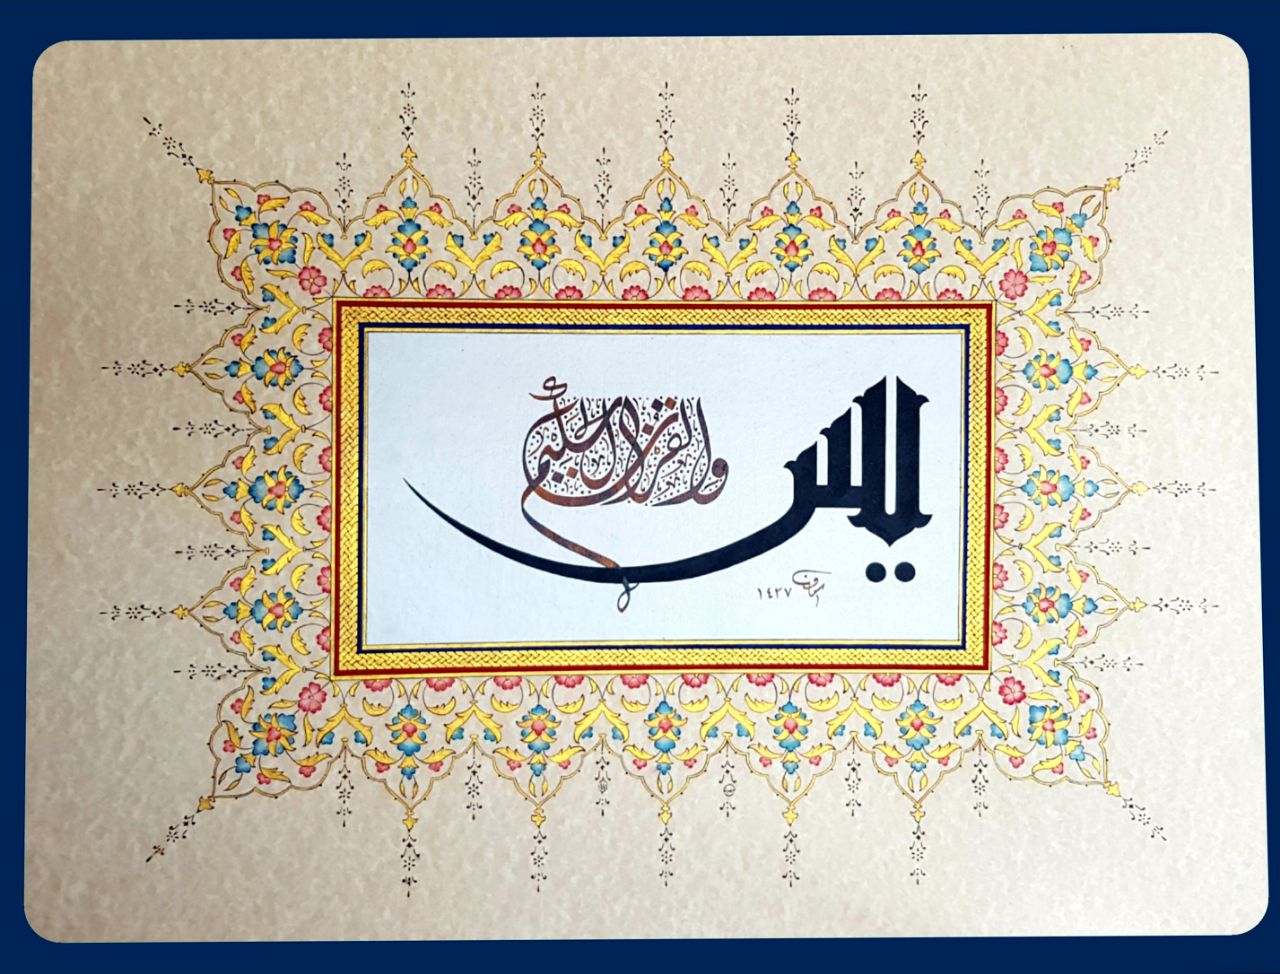 يس
والقرآن الحكيم
١٤٣٧